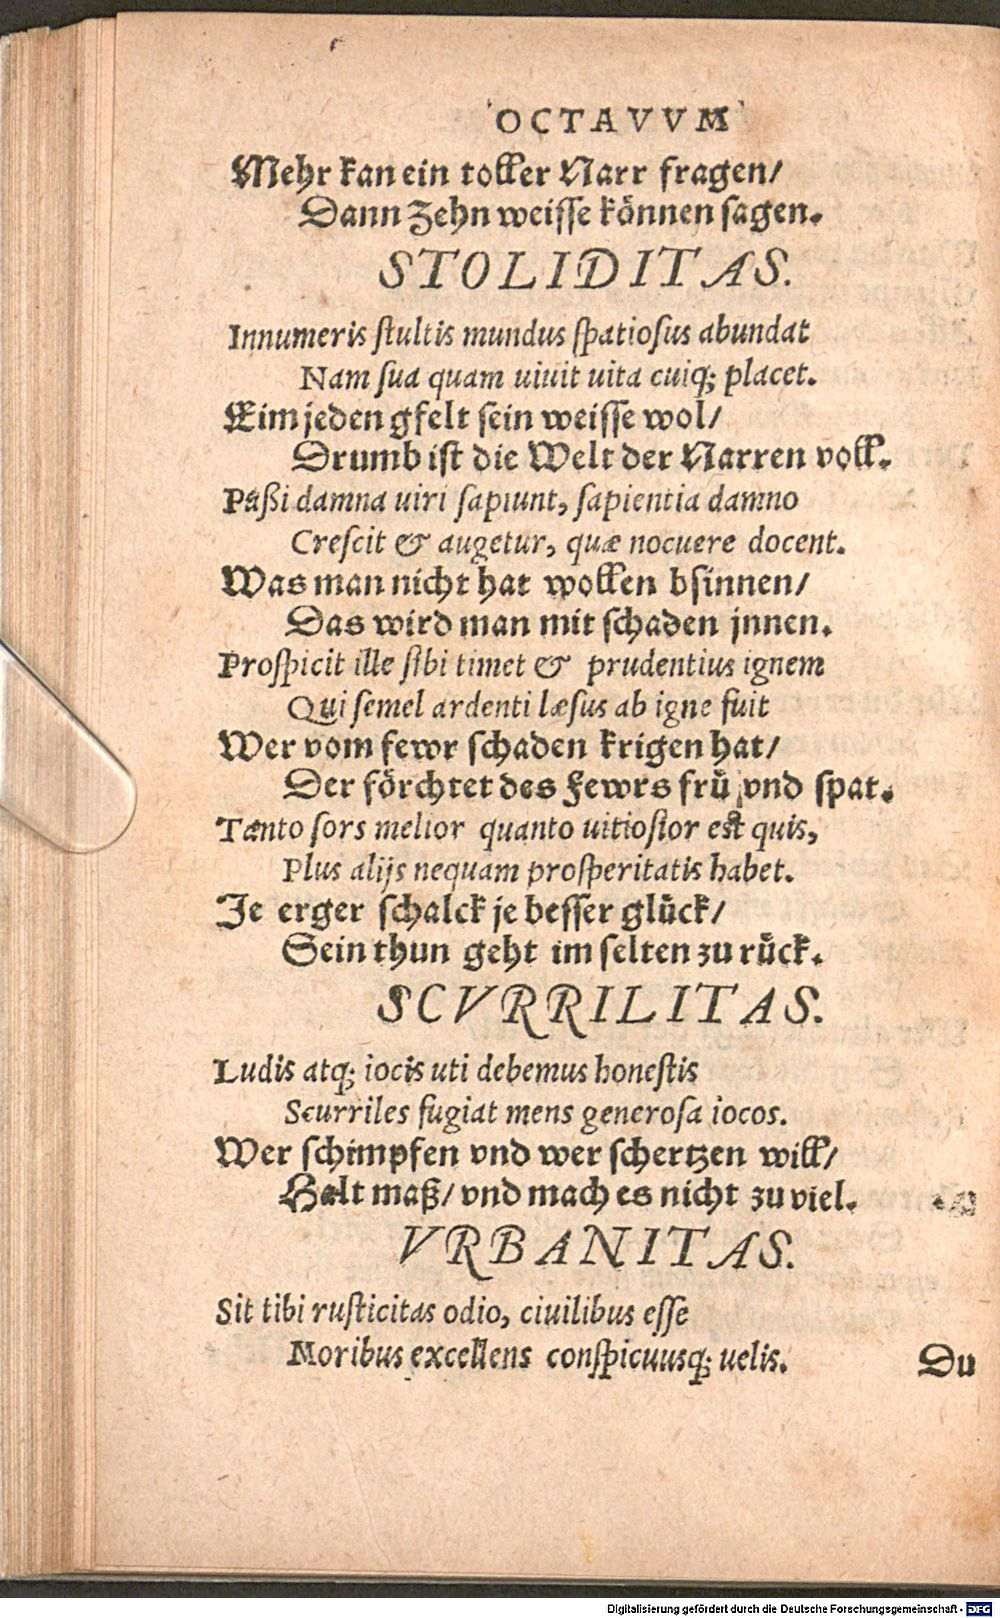 OCTAVVM
Mehr kan ein toller Narr fragen/
Dann Zehn weisse können sagen.
STOLIDITAS.
Innumeris ſtultis mundus ſpatioſus abundat
Nam ſua quam uiuit uita cuiq; placet.
Eim jeden gfelt ſein weiſſe wol/
Drumb iſt die Welt der Narren voll.
Paßi damna uiri ſapiunt, ſapientia damno
Creſcit & augetur, quæ nocuere docent.
Was man nicht hat wollen bſinnen/
Das wird man mit ſchaden jnnen.
Proſpicit ille ſibi timet & prudentius ignem
Qui ſemel ardenti læſus ab igne fuit
Wer vom fewr ſchaden krigen hat/
Der förchtet des Fewrs frü vnd ſpat.
Tanto ſors melior quanto uitioſior eſt quis,
Plus alijs nequam proſperitatis habet.
Je erger ſchalck je beſſer glück/
Sein thun geht im ſelten zu rück.
SCVRRILITAS.
Ludis atq; iocis uti debemus honeſtis
Scurriles fugiat mens generoſa iocos.
Wer ſchimpfen vnd wer ſchertzen will/
Halt maß/ vnd mach es nicht zu viel.
VRBANITAS.
Sit tibi ruſticitas odio, ciuilibus eſſe
Moribus excellens conſpicuusq; uelis.
Du
Digitalisierung gefördert durch die Deutsche Forschungsgemeinschaft - DFG